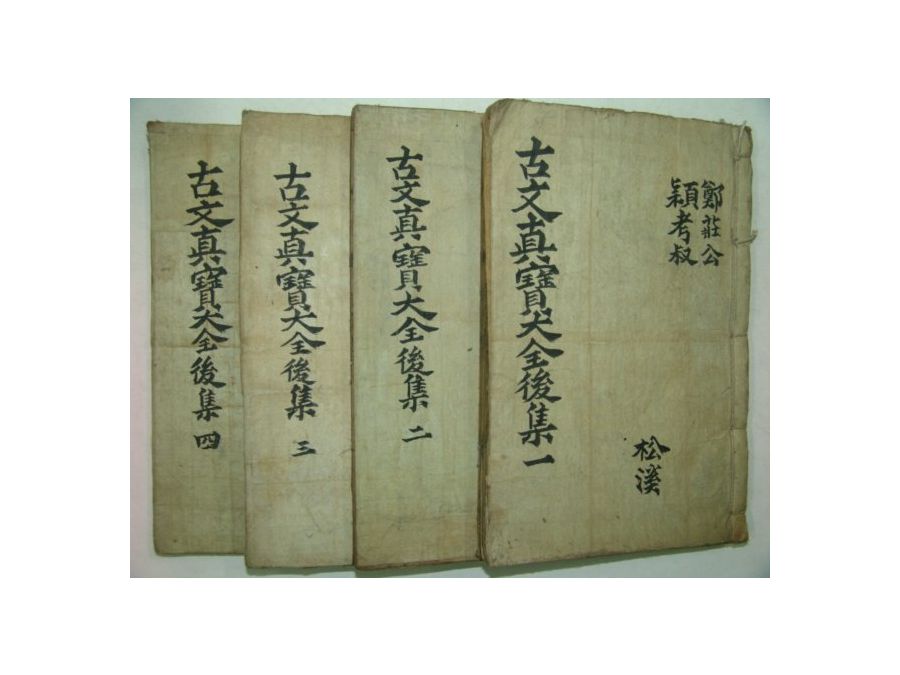 鄭莊公
穎考叔
松溪
古文真寶大全後集 一
古文真寶大全後集 二
古文真寶大全後集 三
古文真寶大全後集 四